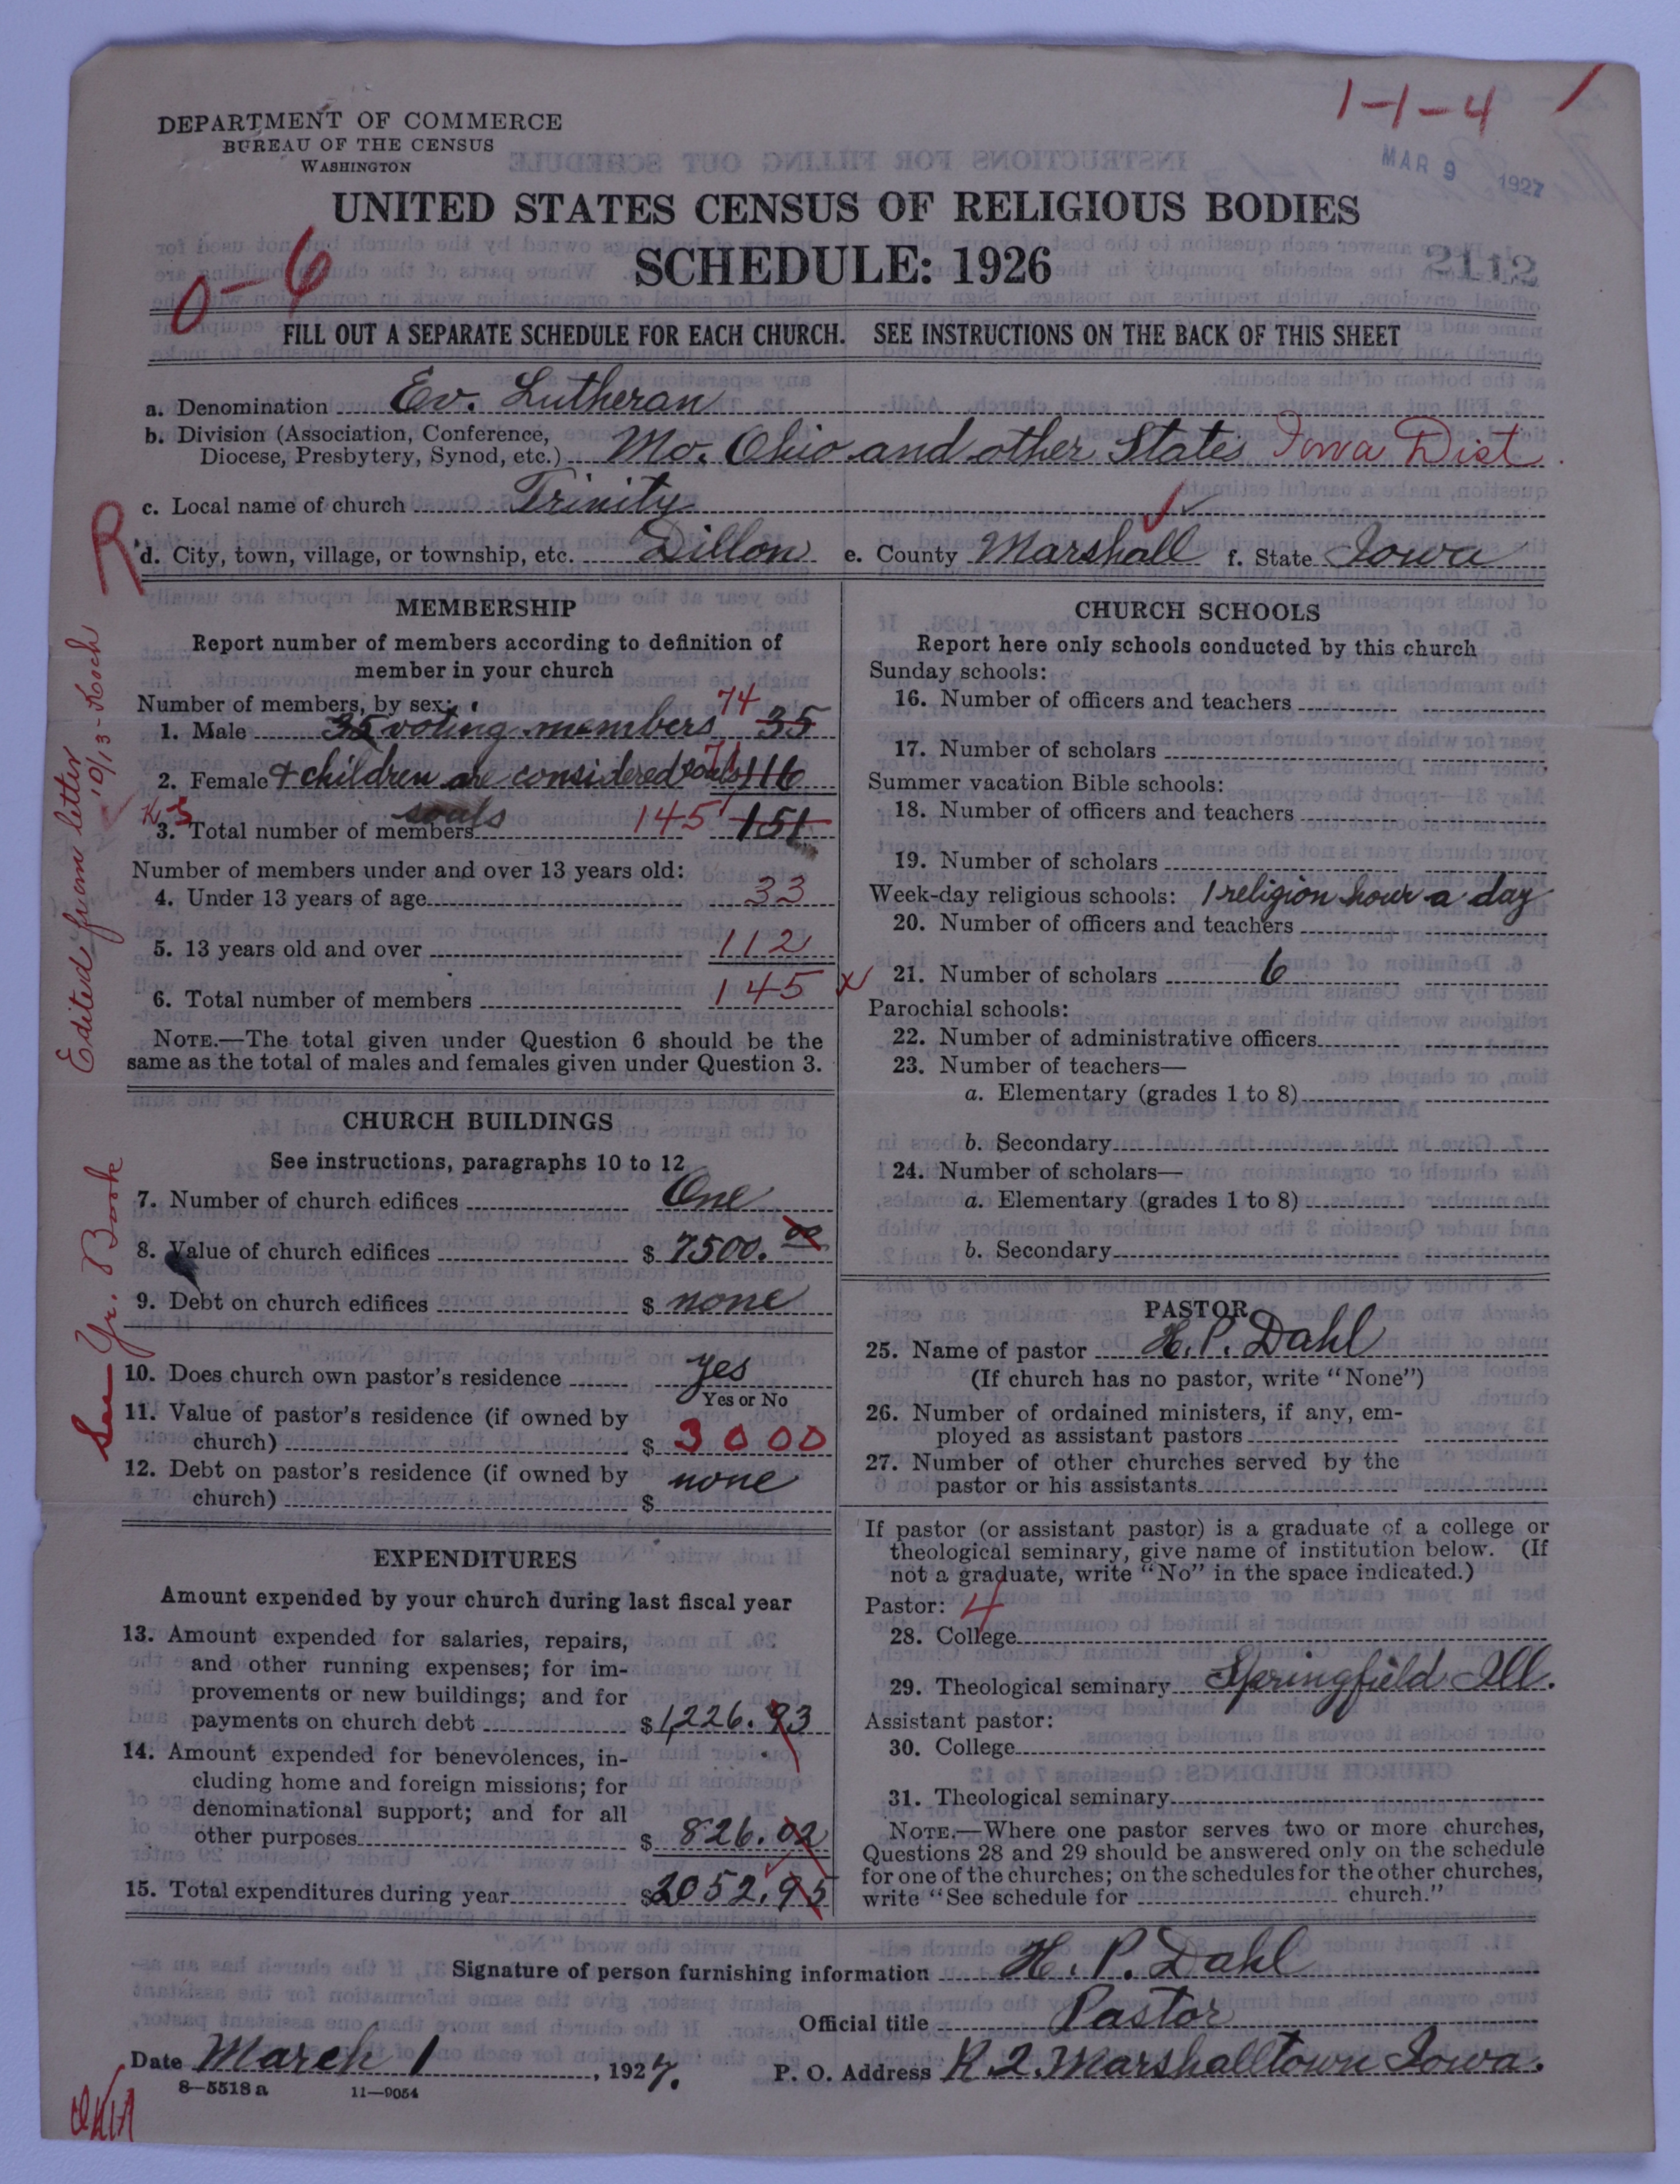 1-1-4 /
DEPARTMENT OF COMMERCE
BUREAU OF THE CENSUS
WASHINGTON
MAR 9 1927
UNITED STATES CENSUS OF RELIGIOUS BODIES
SCHEDULE: 1926
2112
0-6
FILL OUT A SEPARATE SCHEDULE FOR EACH CHURCH. SEE INSTRUCTIONS ON THE BACK OF THIS SHEET
a. Denomination Ev. Lutheran
b. Division (Association, Conference,
Diocese, Presbytery, Synod, etc.) Mo. Ohio and other States Iowa Dist.
c. Local name of church Trinity
R
d. City, town, village, or township, etc. Dillon e. County Marshall f. State Iowa
Edited from letter 10/13-Koch
See Yr. Book
MEMBERSHIP
Report number of members according to definition of
member in your church
Number of members, by sex:
1. Male 35 voting members 74 35
2. Female & children are considered souls 71 116
3. Total number of members souls 145 151
Number of members under and over 13 years old:
4. Under 13 years of age 33
5. 13 years old and over 112
6. Total number of members 145
NOTE.—The total given under Question 6 should be the
same as the total of males and females given under Question 3.
CHURCH BUILDINGS
See instructions, paragraphs 10 to 12
7. Number of church edifices One
8. Value of church edifices $ 7500.00
9. Debt on church edifices $ none
10. Does church own pastor's residence yes
Yes or No
11. Value of pastor's residence (if owned by
church) $ 3000
12. Debt on pastor's residence (if owned by
church) $ none
EXPENDITURES
Amount expended by your church during last fiscal year
13. Amount expended for salaries, repairs,
and other running expenses; for im-
provements or new buildings; and for
payments on church debt $1,226.93
14. Amount expended for benevolences, in-
cluding home and foreign missions; for
denominational support; and for all
other purposes $ 826.02
15. Total expenditures during year $2052.95
CHURCH SCHOOLS
Report here only schools conducted by this church
Sunday schools:
16. Number of officers and teachers
17. Number of scholars
Summer vacation Bible schools:
18. Number of officers and teachers
19. Number of scholars
Week-day religious schools: 1 religion hour a day
20. Number of officers and teachers
x 21. Number of scholars 6
Parochial schools:
22. Number of administrative officers
23. Number of teachers—
a. Elementary (grades 1 to 8)
b. Secondary
24. Number of scholars—
a. Elementary (grades 1 to 8)
b. Secondary
PASTOR
25. Name of pastor H. P. Dahl
(If church has no pastor, write "None")
26. Number of ordained ministers, if any, em-
ployed as assistant pastors
27. Number of other churches served by the
pastor or his assistants
If pastor (or assistant pastor) is a graduate of a college or
theological seminary, give name of institution below. (If
not a graduate, write "No" in the space indicated.)
Pastor: 4
28. College
29. Theological seminary Springfield Ill.
Assistant pastor:
30. College
31. Theological seminary
NOTE.—Where one pastor serves two or more churches,
Questions 28 and 29 should be answered only on the schedule
for one of the churches; on the schedules for the other churches,
write "See schedule for church."
Signature of person furnishing information H. P. Dahl
Official title Pastor
Date March 1, 1927. P. O. Address R 2. Marshalltown Iowa.
8—5518 a 11—9054